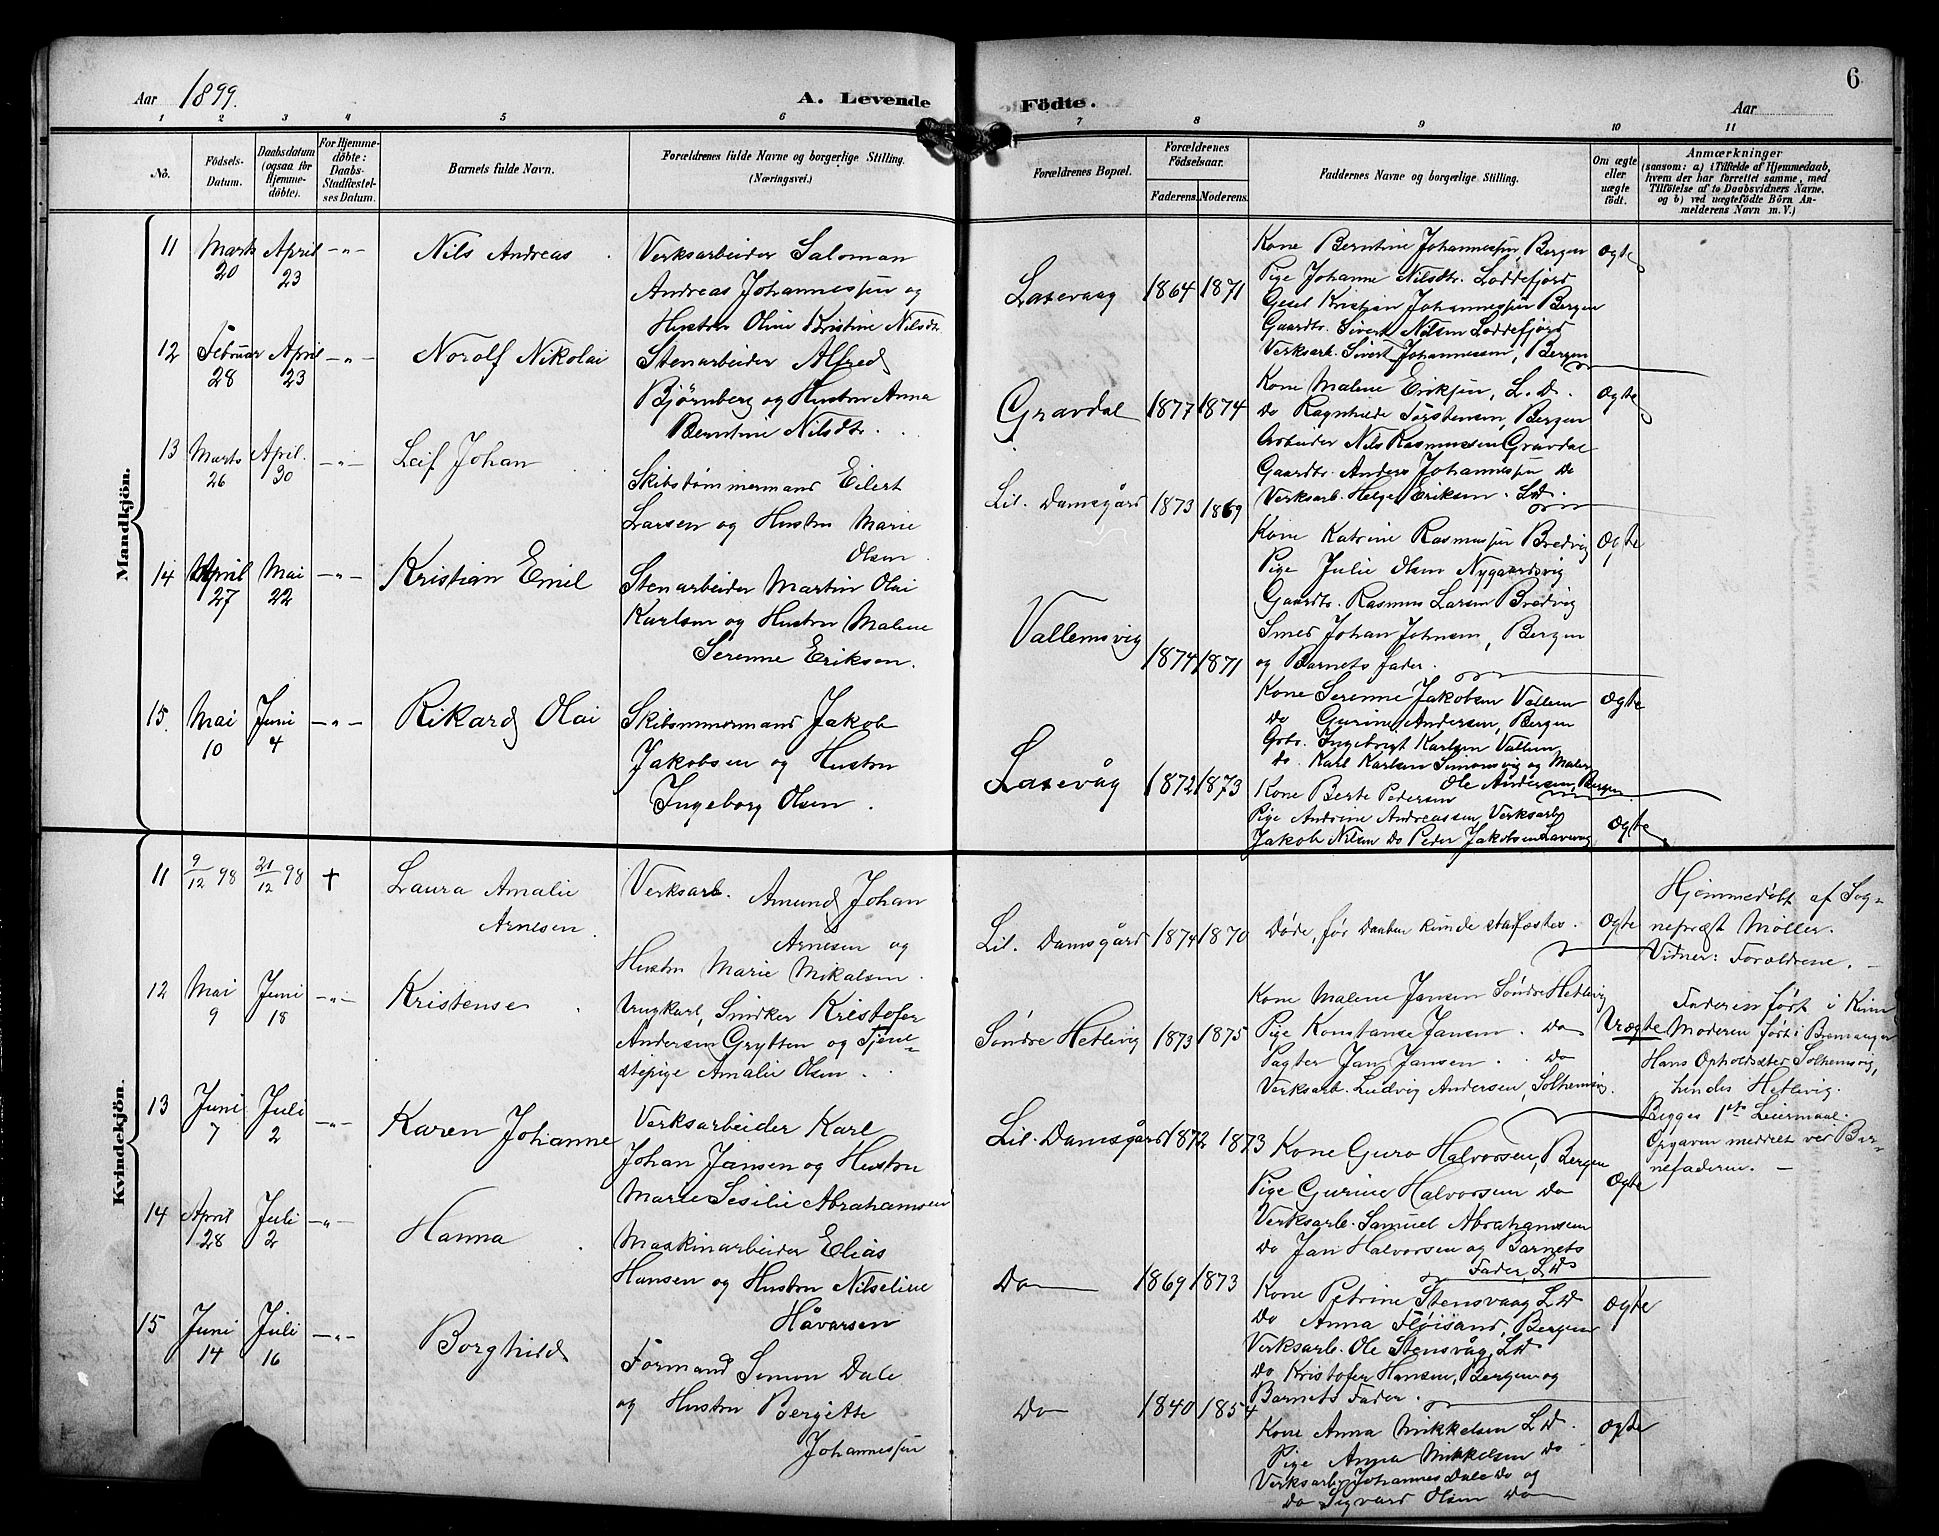 Aar 1899.
A. Levende Födte.
Aar
6
1 2 3 4 5 6 7 8 9 10 11
No.
Födsels-Datum.
Daabsdatum (ogsaa for Hjemmedöbte).
For Hjemmedöbte: Daabs-Stadfæstelses Datum.
Barnets fulde Navn.
Forældrenes fulde Navne og borgerlige Stilling. (Næringsvei.)
Forældrenes Bopæl.
Forældrenes Födselsaar.
Faderens. Moderens.
Faddernes Navne og borgerlige Stilling.
Om ægte eller uægte födt.
Anmærkninger
(saasom: a) i Tilfælde af Hjemmedaab, hvem der har forrettet samme, med Tilföielse af to Daabsvidners Navne, og b) ved uægtefödte Börn Anmelderens Navn m. V.)
Mandkjön.
11 Marts 20 April 23 -"- Nils Andreas
Verksarbeider Saloman
Andreas Johannessen og
Hustru Oline Kristine Nilsdtr.
Laxevaag 1864 1871
Kone Berntine Johannessen, Bergen
Pige Johanne Nilsdtr. Loddefjord
Gesel Kristian Johannessen Bergen
Gaardbr. Sivert Nilsen Loddefjord
Verksarb. Sivert Johannessen, Bergen
Ægte
12 Februar 28 April 23 -"- Norolf Nikolai
Stenarbeider Alfred
Bjørnberg og Hustru Anna
Berntine Nilsdtr.
Gravdal 1877 1874
Kone Malene Eriksen, L. D.
Do Ragnhilde Torstensen, Bergen
Arbeider Nils Rasmussen Gravdal
Gaardbr. Anders Johannessen Do
Verksarb. Helge Eriksen. L.D.
Ægte
13 Marts 26 April 30 -"- Leif Johan
Skibstømmermand Eilert
Larsen og Hustru Marie
Olsen
Lil. Damsgård 1873 1869
Kone Katrine Rasmussen Bredvig
Pige Julie Olsen Nygaardsvig
Gaardbr. Rasmus Larsen Bredvig
Smed Johan Johnsen, Bergen
og Barnets Fader.
Ægte
14 April 27 Mai 22 -"- Kristian Emil
Stenarbeider Martin Olai
Karlsen og Hustru Malene
Serenne Eriksen.
Vallemsvig 1874 1871
Kone Serenne Jakobsen Vallem
Do Gurine Andersen, Bergen
Gbr. Ingebrigt Karlsen Vallem
Do. Karl Karlsen Simonsvig og Maler
Ole Andersen, Bergen
Ægte
15. Mai 10 Juni 4 -"- Rikard Olai
Skibsmmermand Jakob
Jakobsen og Hustru
Ingeborg Olsen.
Laxevåg 1872 1873
Kone Berte Pedersen
Pige Andrine Andreassen, Verksarb.
Jakob Nilsen Do Peder Jakobsen Laxevaag
Ægte
Kvindekjön.
11 9/12 98 21/12 98 † Laura Amalie
Arnesen.
Verksarb. Amund Johan
Arnesen og
Hustru Marie Mikalsen.
Lil. Damsgård 1874 1870
Døde, før Daaben kunde stafæstes.
Ægte
Hjemmedøbt af Sog-
neprest Møller.
Vidner: Forældrene.
12 Mai 9 Juni 18 -"- Kristense
Ungkarl, Snidker Kristofer
Andersen Grytten og Tjene-
stepige Amalie Olsen.
Søndre Hetlevig 1873 1875
Kone Malene Jansen Søndre Hetlevig
Pige Konstanse Jansen. Do
Pagter Jan Jansen. Do
Verksarb. Ludvig Andersen, Solhemsvig.
Uægte
Faderen født i Kinn
Moderen født i Bremanger
Hans Opholdssted Solhemsvig,
hendes Hetlevig.
Begges 1ste Leiermaal.
Opgaven meddelt ved Bar-
nefaderen.
13 Juni 7 Juli 2 -"- Karen Johanne
Verksarbeider Karl
Johan Jansen og Hustru
Marie Sesilie Abrahamsen
Lil. Damsgård 1872 1873
Kone Guro Halvorsen, Bergen
Pige Gurine Halvorsen Do
Verksarb. Samuel Abrahamsen
Do Jan Halvorsen og Barnets
Fader, L.D.
Ægte
14 April 28 Juli 2 -"- Hanna
Maskinarbeider Elias
Hansen og Hustru Nilseline
Håvarsen
Do 1869 1873
Kone Petrine Stensvaag L D
Do Anna Fløisand, Bergen
Verksarb. Ole Stensvåg, L.D
Do Kristofer Hansen, Bergen og
Barnets Fader.
Ægte
15 Juni 14 Juli 16 -"- Borghild
Formand Simon Dale
og Hustru Bergitte
Johannessen
Do 1840 1854
Kone Anna Mikkelsen L D.
Pige Anna Mikkelsen Do
Verksarb. Johannes Dale Do og
Do Sigvard Olsen Do
Ægte